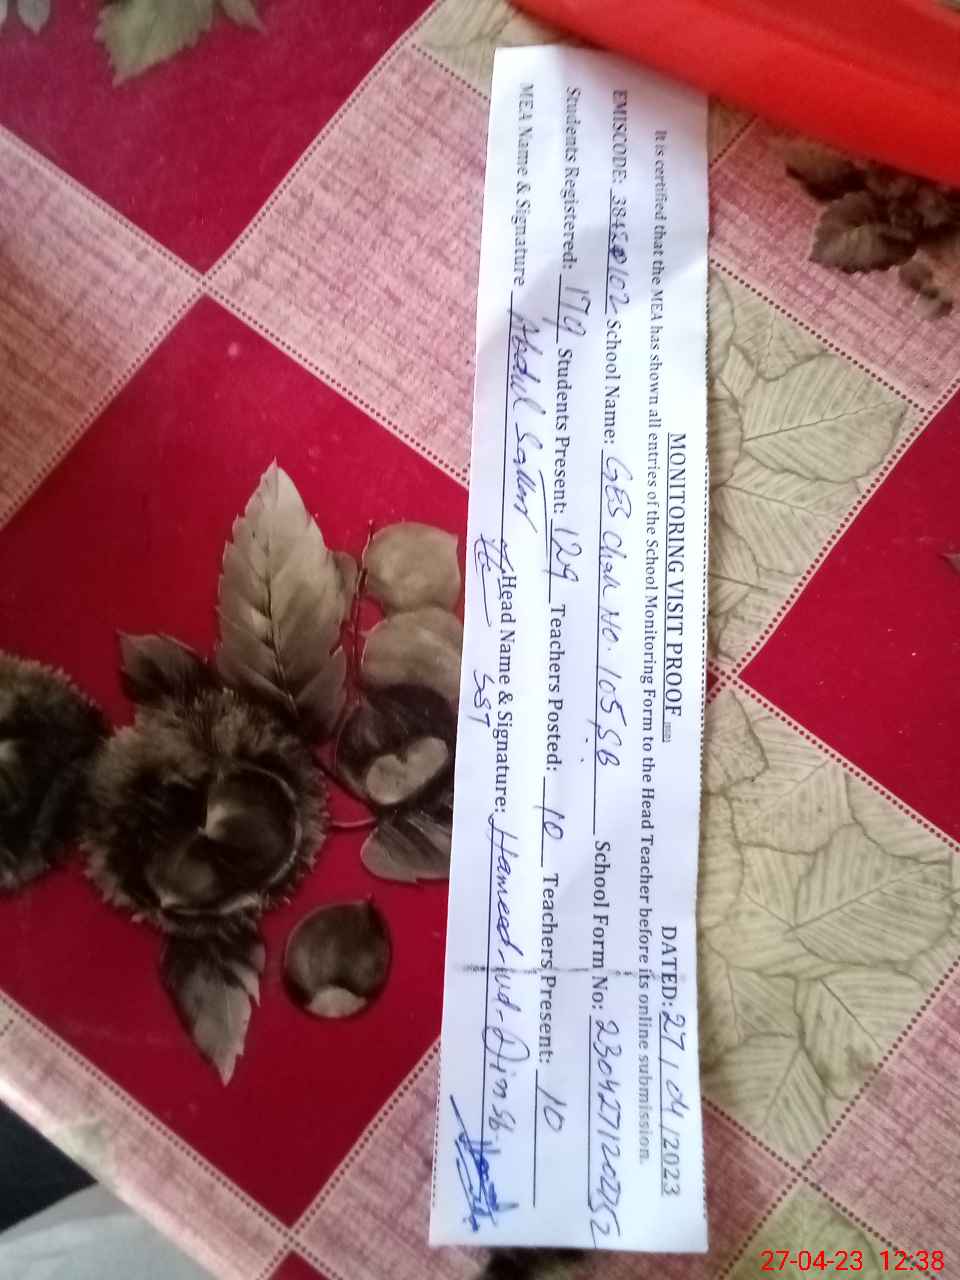 MONITORING VISIT PROOF DATED: 27/04/2023
It is certified that the MEA has shown all entries of the School Monitoring Form to the Head Teacher before its online submission.
EMISCODE: 38420102 School Name: GES Chak No. 105, SB School Form No:
Students Registered: 179 Students Present: 129 Teachers Posted: 10 Teachers Present: 10
MEA Name & Signature Abdul Sattar Head Name & Signature: Hameed-ud-Din Sb.
SST
27-04-23 12:38